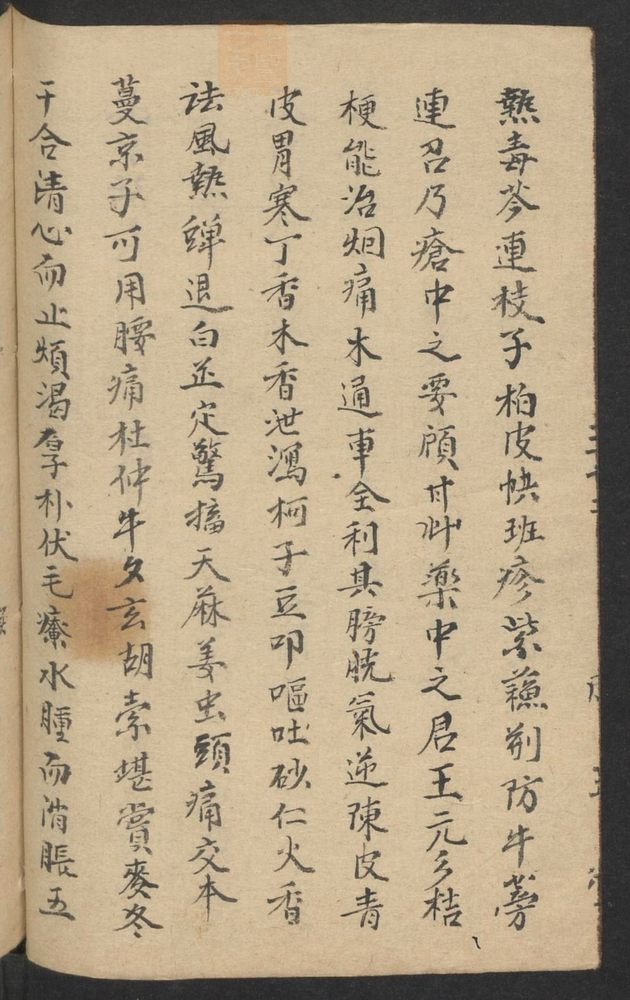 熱毒芩連枝子柏皮快班疹紫蘓荆防牛蒡
連召乃瘡中之要領甘艸藥中之君王元彡桔
梗能治烟痛木通車全利其膀胱氣逆陳皮青
皮胃寒丁香木香泄瀉柯子豆叩嘔吐砂仁火香
祛風熱蟬退白芷定驚搐天蔴姜虫頭痛交本
蔓京子可用腰痛杜仲牛夕玄胡索堪賞麥冬
干合清心而止煩渴厚朴伏毛療水腫而消脹五